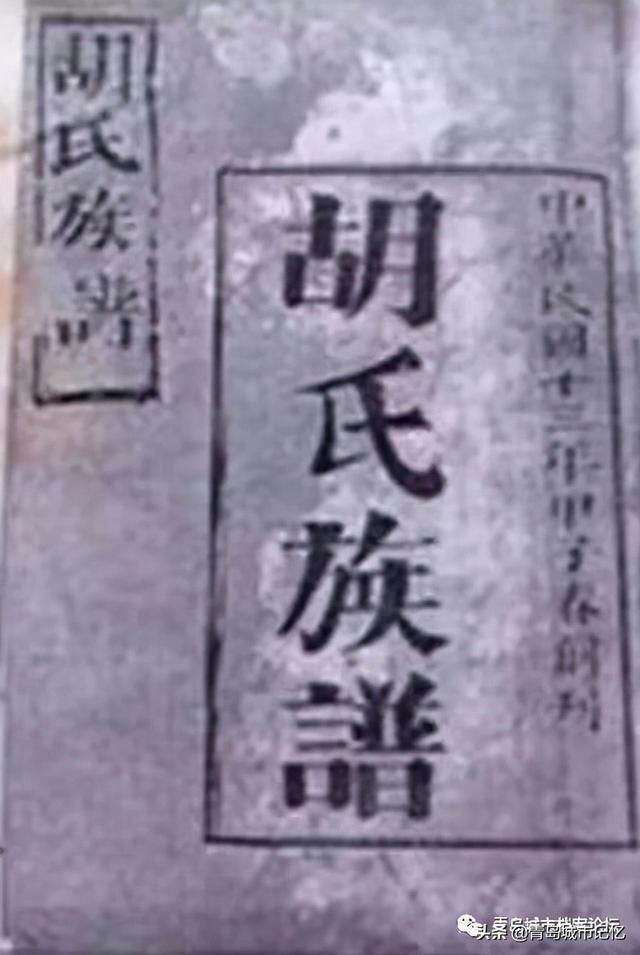 中華民國十三年甲子春創刊
胡氏族譜
胡氏族譜
青岛城市档案论坛
头条 @青岛城市记忆